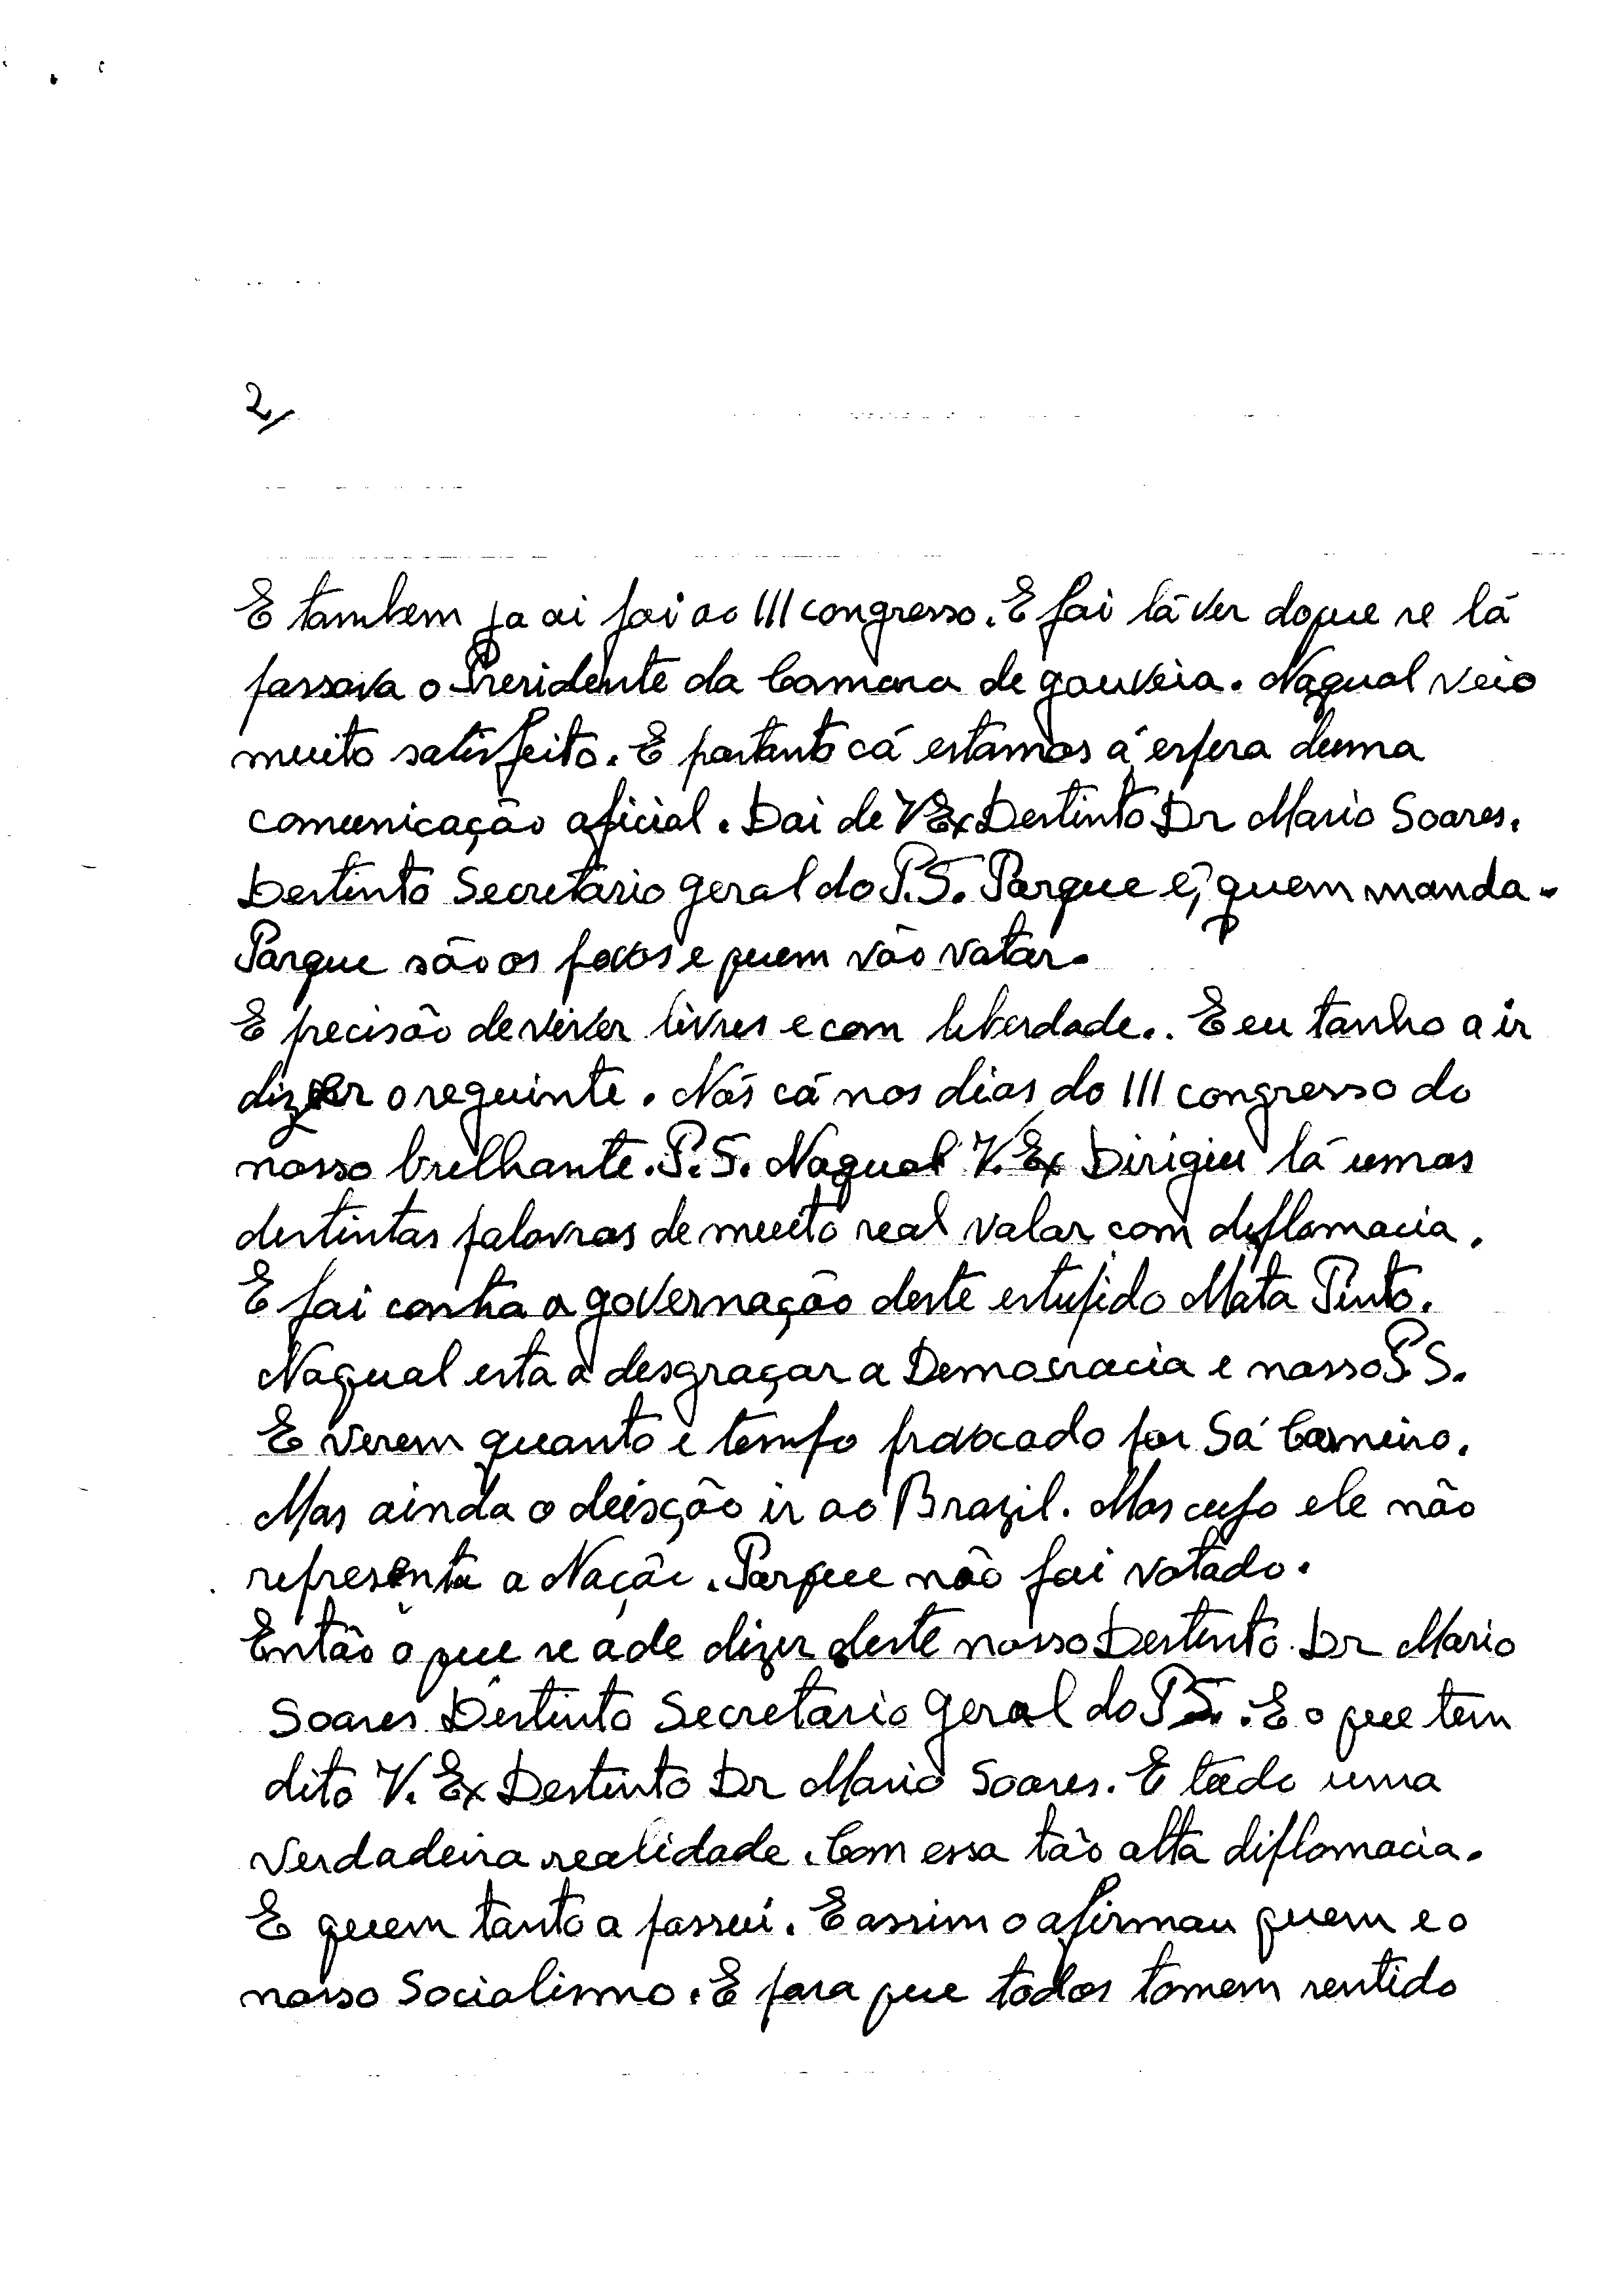 2/
E tambem ja ai foi ao III congresso. E foi lá ver do que se lá
passava o Presidente da Camara de gouveia. Naqual veio
muito satisfeito. E portanto cá estamos á espera duma
comunicação oficial. Dai de V Ex Destinto Dr Mario Soares.
Destinto Secretário geral do P.S. Porque é, quem manda.
Porque são os povos e quem vão votar.
E precisão de viver livres e com liberdade.. E eu tanho a ir
dizer o seguinte. Nós cá nos dias do III congresso do
nosso brilhante. P.S. Naqual V. Ex Dirigiu lá umas
destintas palavras de muito real valor com diplomacia.
E foi contra a governação deste estupido Mota Pinto.
Naqual esta a desgraçar a Democracia e nosso P.S.
E verem quanto é tempo provocado por Sá Carneiro.
Mas ainda o deisção ir ao Brazil. Mas cujo ele não
representa a Nação. Porque não foi votado.
Então o que se ade dizer deste nosso Destinto Dr Mario
Soares Destinto Secretario geral do PS. . E o que tem
dito V. Ex Destinto Dr Mario Soares. E tudo uma
verdadeira realidade. Com essa tão alta diplomacia.
E quem tanto a possui. E assim o afirmou quem e o
nosso Socialismo. E para que todos tomem sentido